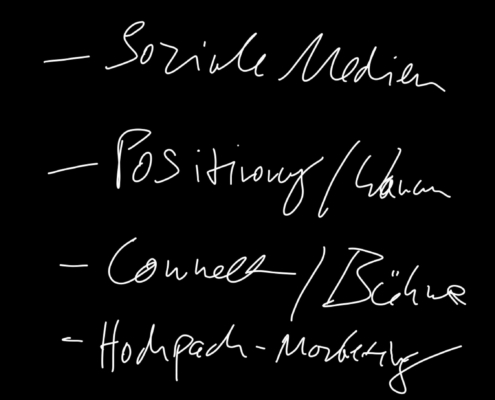 - Soziale Medien
- Positionung / Warum
- Connect / Bühne
- Hochpach-Marketing